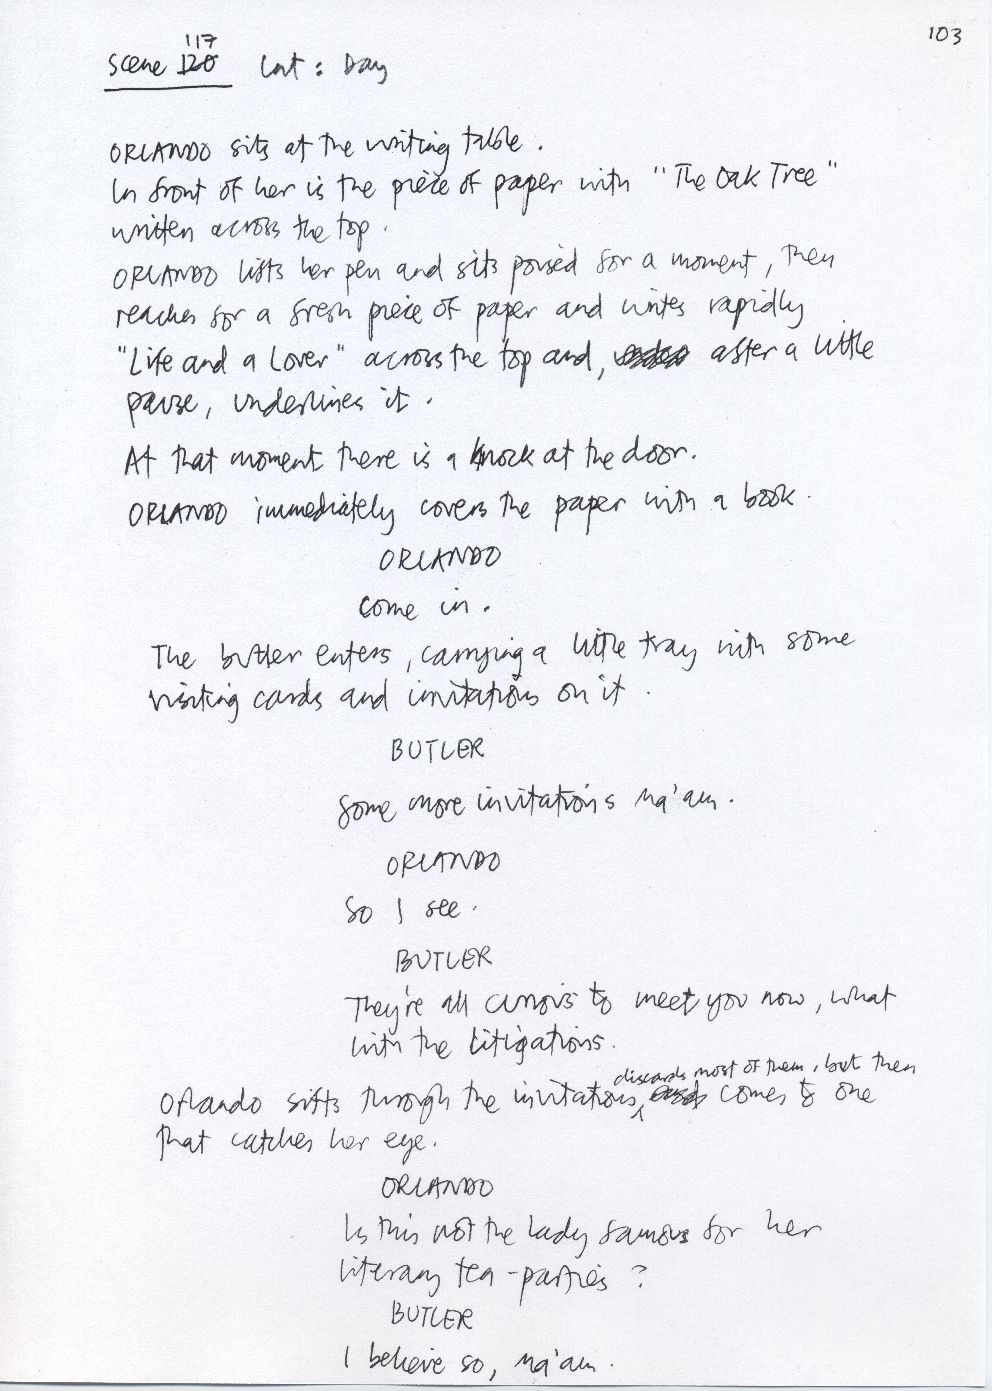 103
117
Scene 120 Int : Day
ORLANDO sits at the writing table .
In front of her is the piece of paper with "The Oak Tree"
written across the top .
ORLANDO lifts her pen and sits poised for a moment, then
reaches for a fresh piece of paper and writes rapidly
"Life and a Lover" across the top and, after a little
pause, underlines it .
At that moment there is a knock at the door.
ORLANDO immediately covers the paper with a book.
ORLANDO
Come in .
The butler enters, carrying a little tray with some
visiting cards and invitations on it .
BUTLER
Some more invitations Ma'am .
ORLANDO
So I see .
BUTLER
They're all curious to meet you now, what
with the litigations.
discards most of them, but then
Orlando sifts through the invitations, comes to one
that catches her eye.
ORLANDO
Is this not the lady famous for her
literary tea-parties ?
BUTLER
I believe so, Ma'am .